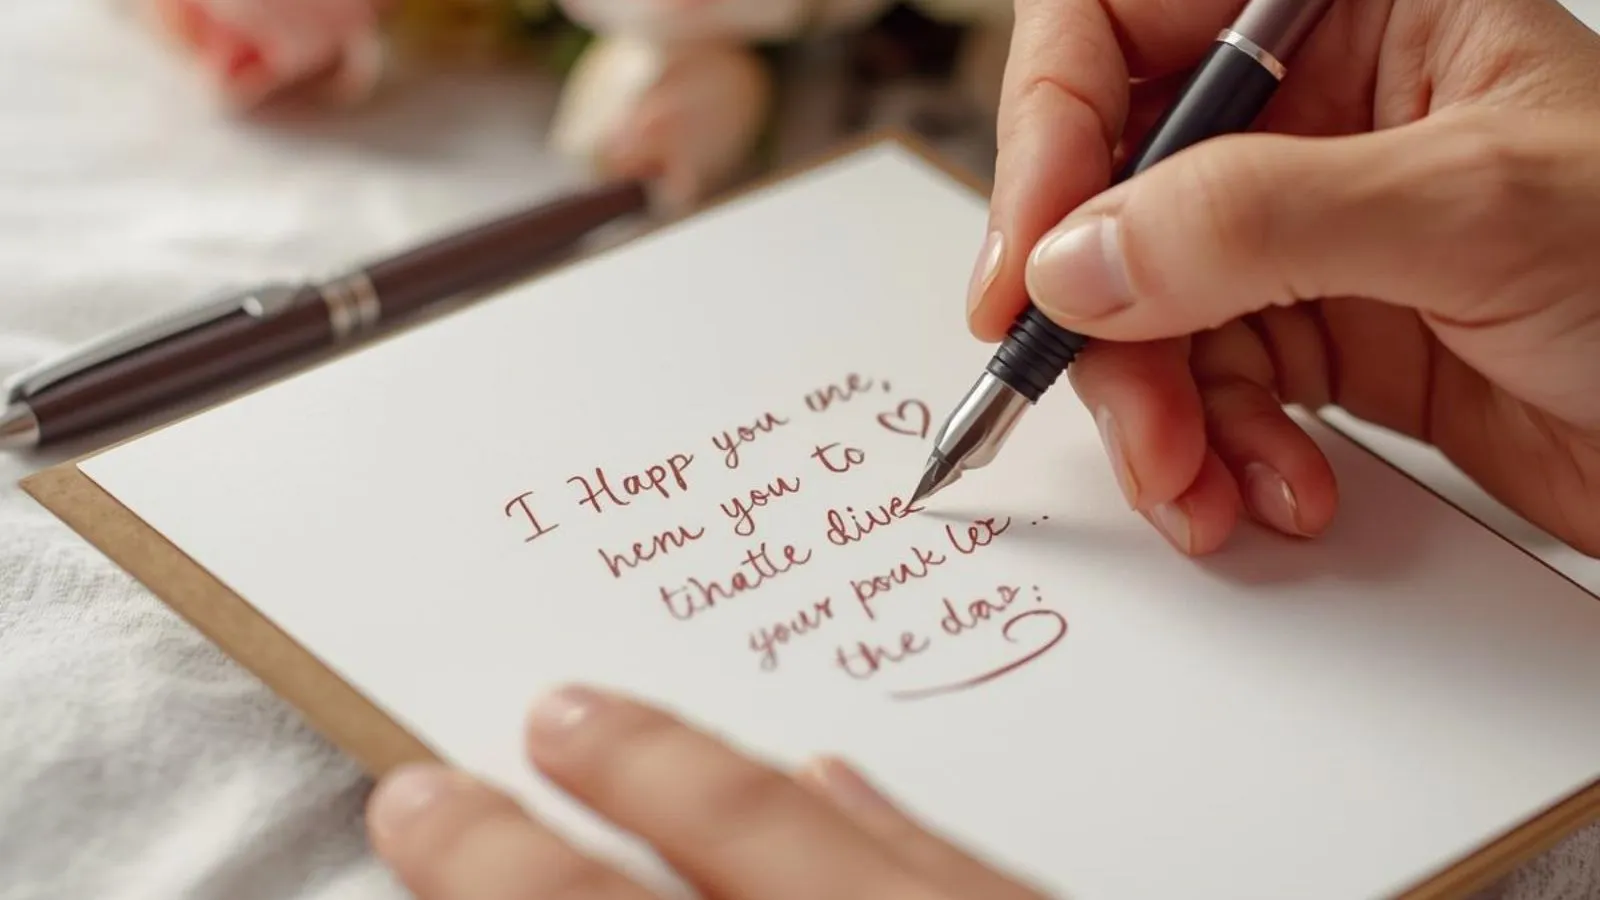 I Happ you me,
hem you to
tihatle dive
your pouk ler ..
the das: